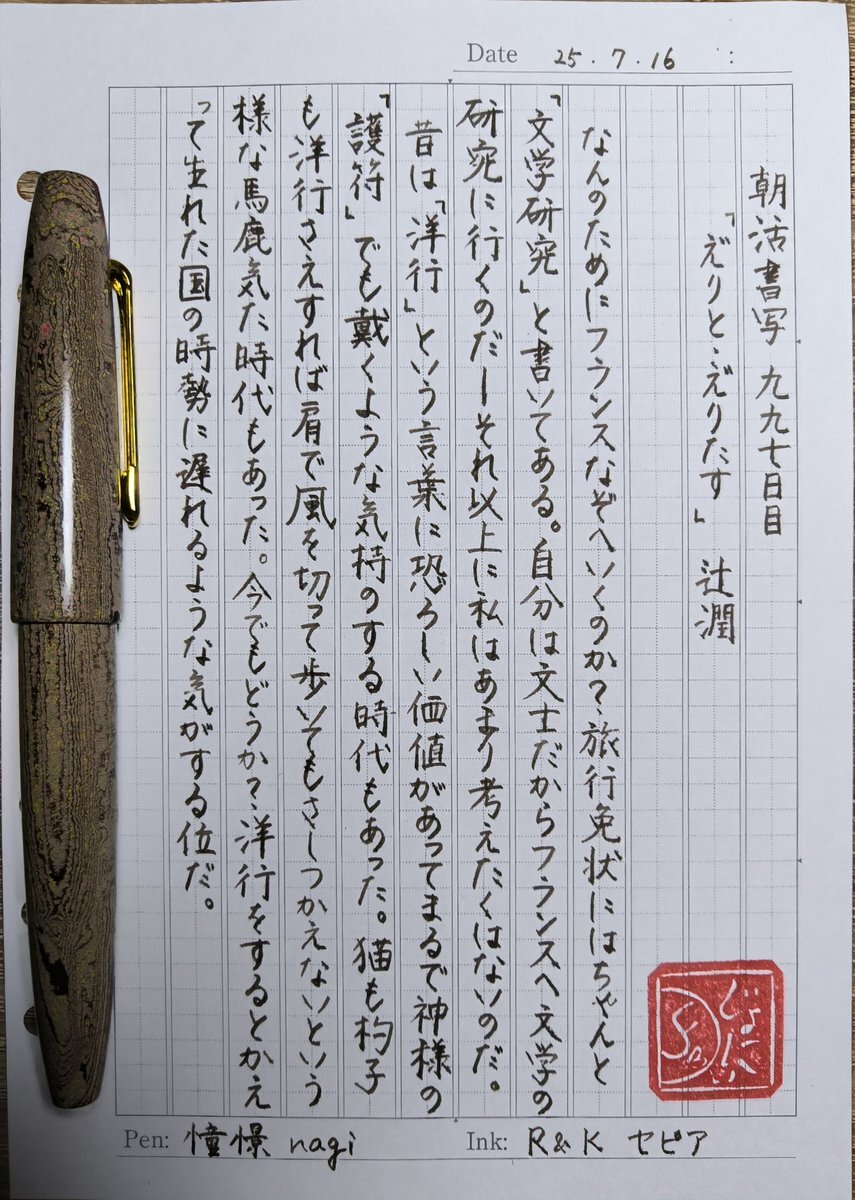 Date 25.7.16 :
朝活書写 九九七日目
「えりと・えりたす」 辻潤
なんのためにフランスなぞへいくのか?旅行免状にはちゃんと
「文学研究」と書いてある。自分は文士だからフランスへ文学の
研究に行くのだーそれ以上に私はあまり考えたくはないのだ。
昔は「洋行」という言葉に恐ろしい価値があってまるで神様の
「護符」でも戴くような気持のする時代もあった。猫も杓子
も洋行さえすれば肩で風を切って歩いてもさしつかえないという
様な馬鹿気た時代もあった。今でもどうか?洋行をするとかえ
って生れた国の時勢に遅れるような気がする位だ。
Pen: 憧憬 nagi
Ink: R&K セピア